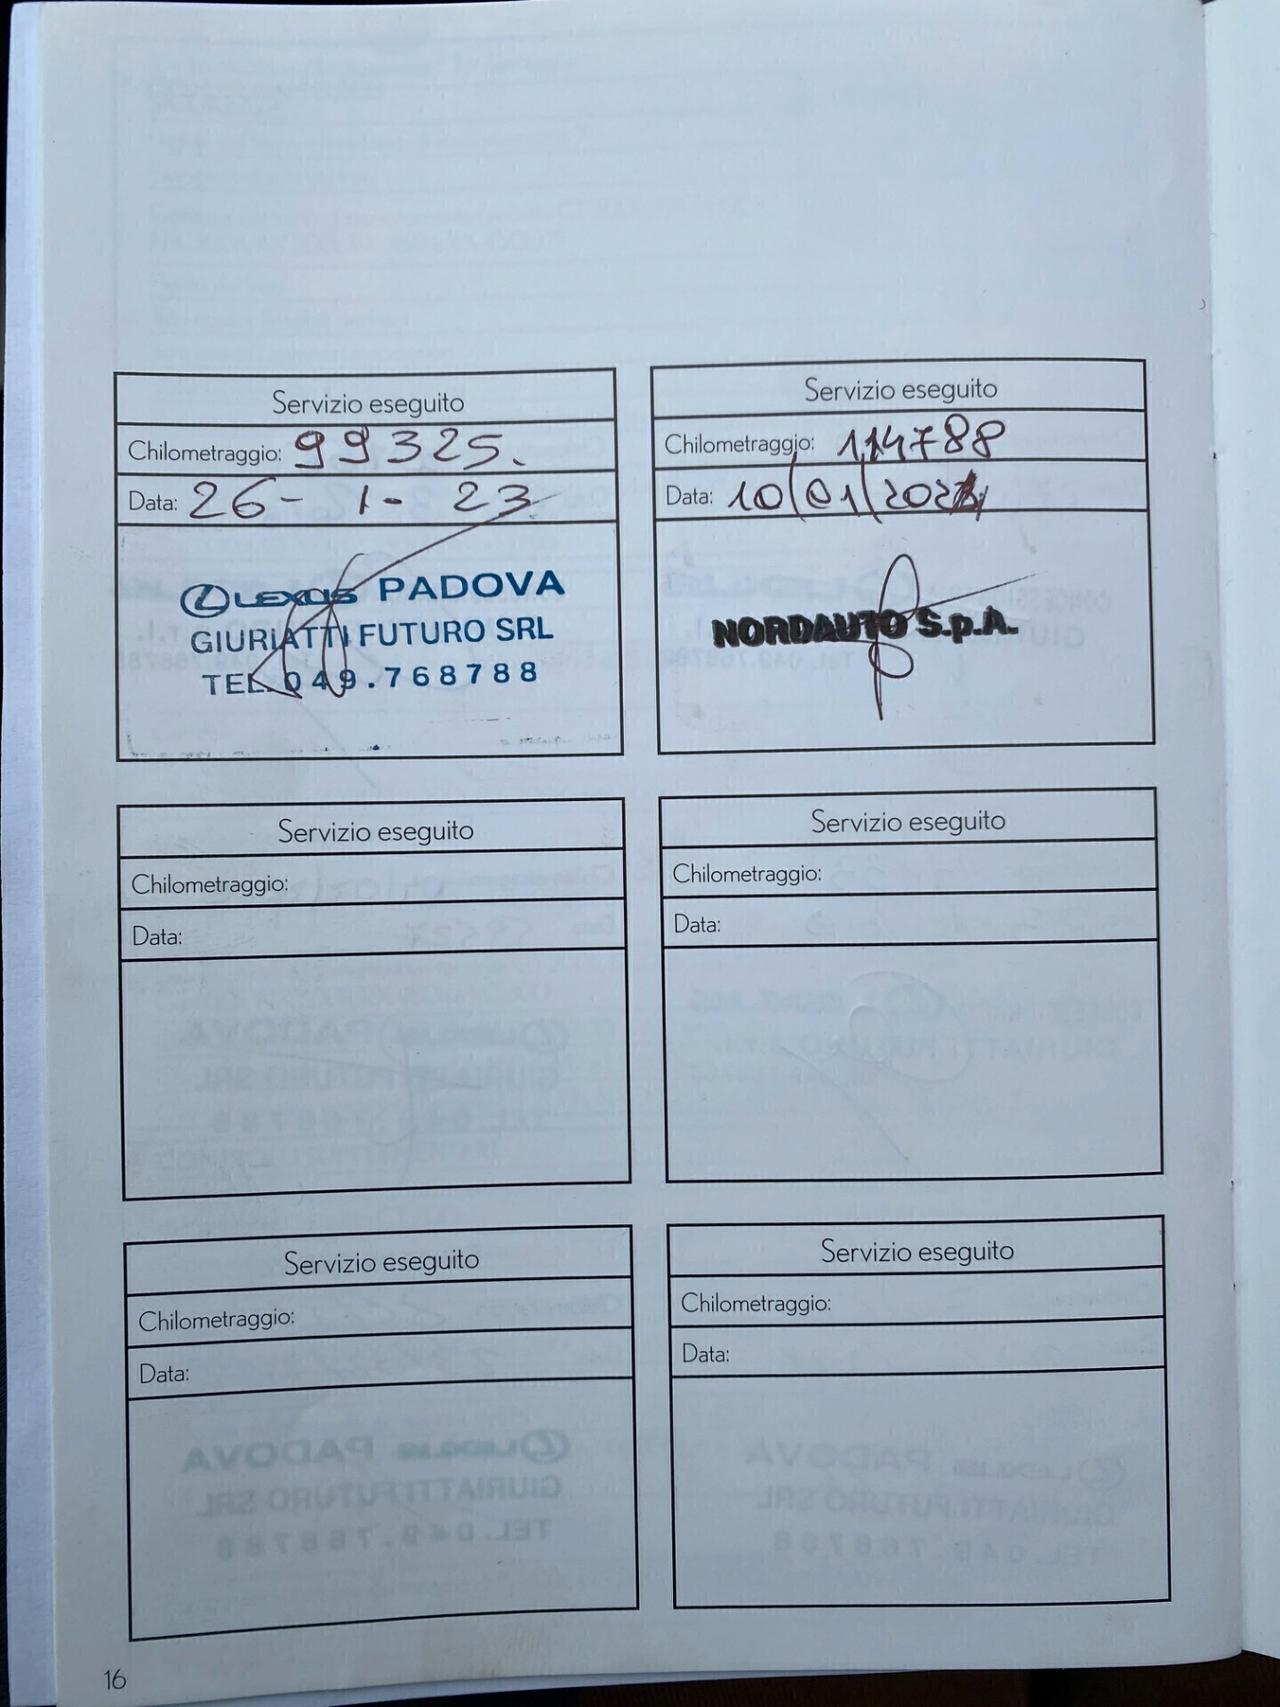 Servizio eseguito
Chilometraggio: 99325.
Data: 26-1-23
LEXUS PADOVA
GIURIATTI FUTURO SRL
TEL. 049.768788
Servizio eseguito
Chilometraggio: 114788
Data: 10/01/2024
NORDAUTO S.p.A.
Servizio eseguito
Chilometraggio:
Data:
Servizio eseguito
Chilometraggio:
Data:
Servizio eseguito
Chilometraggio:
Data:
Servizio eseguito
Chilometraggio:
Data:
16